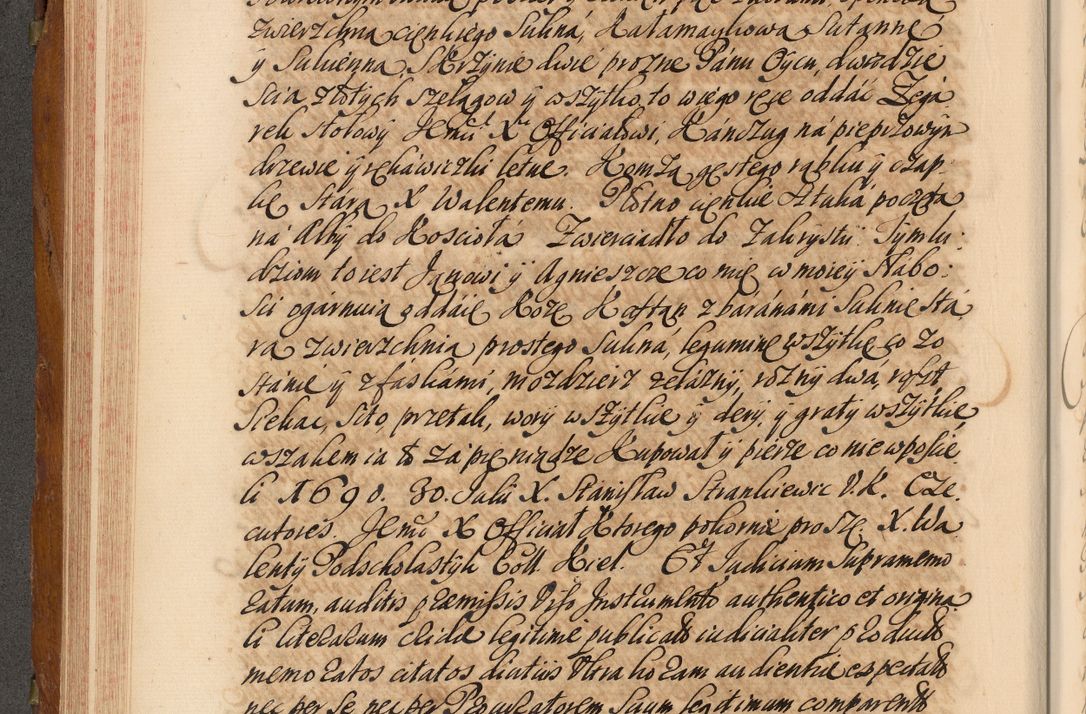 zwierzchna cienkiego Sukná, Kałamaykowa Sutanne
ÿ Sukienna, Skrzÿnie dwie prozne Pánu Oÿcu, dwadzie
scia złotÿch szelągow ÿ wszÿtko to w iego ręce oddáć Zega
rek stołowÿ Jemći X Officiałowi, Kanczug ná pieprzowÿm
drzewie ÿ rękáwiczki letne. Komzą gęstego rąbku ÿ czap
kę stárą X Walentemu. Płotno cienkie sztuká poczęta
ná Albÿ do Koscioła Zwierciadło do Zakrystii Tÿm lu:
dziom to iest Janowi ÿ Agnieszce co mię w moieÿ słabo:
sci ogárnuią oddáię Kożę Kaftan z báránámi Suknie stá
rą zwierzchnia prostego Sukná, leguminę wszÿtkę co zo
stánie ÿ z fáskámi, mozdzierz zelaznÿ, rożnÿ dwá, roszt
siekac, sito, przetak, worÿ wszÿtkie ÿ derÿ, ÿ gratÿ wszÿtkie
wszakem ia to zá pieniądze Kupował ÿ pierze co nie w poscie
li 1690. 30. Julii X. Stanisław Strankiewic V. K. Exe
cutores. Jemć X Officiał Ktorego pokornie proszę. X. Wa
lentÿ Podscholastÿk Coll. Kiel. Et Judicium supramemo
ratum, auditis præmissis viso Instrumento authentico et origina
li literarum eiꝺde legitime publicato iudicialiter producto
memoratos citatos diutius Ultra horam audientiæ expectatos
nec per se nec per Procuratorem suum legitimum comparentes